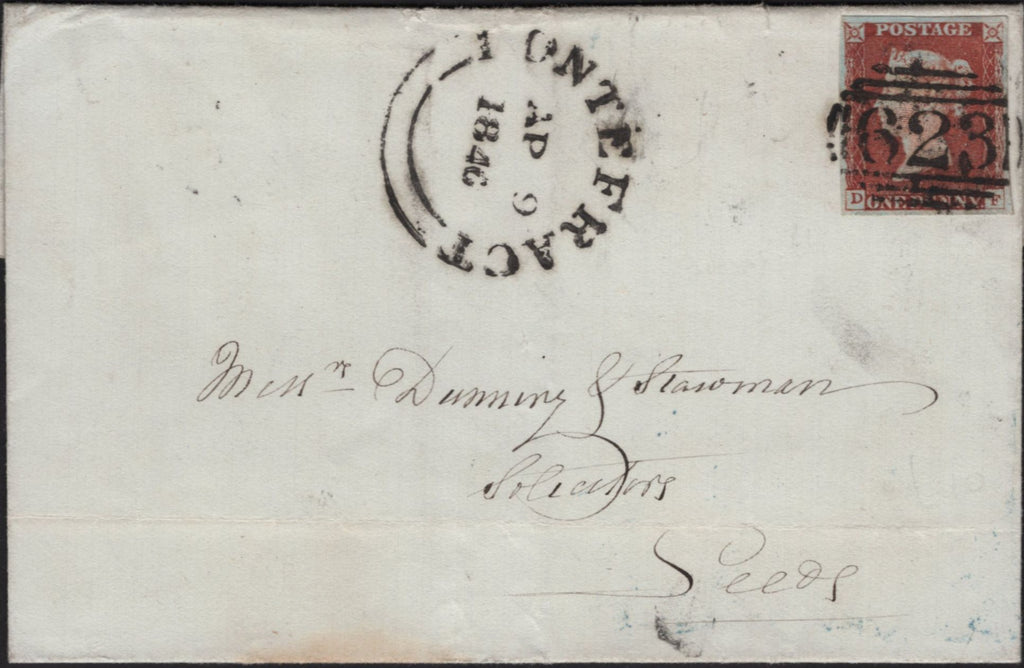 PONTEFRACT
AP 9
1846
POSTAGE
623
D ONE PENNY F
Messrs Dunning & Stawman
Solicitors
Leeds